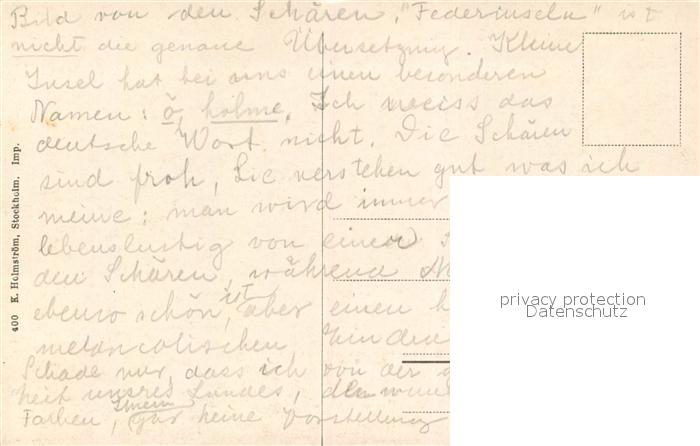 Bild von den Schären, "Federinseln" ist
nicht die genaue Übersetzung. Kleine
Insel hat bei uns einen besonderen
Namen: ö, holme. Ich weiss das
deutsche Wort nicht. Die Schären
sind froh, Sie verstehen gut was ich
meine: man wird immer
lebenslustig von einer
den Schären, während
ebenso schön ist, aber einen
melancolischen Eindru
Schade nur, dass ich von der
heit unsres Landes, den wun
Farben, Ihnen gar keine Vorstellung
400 E. Holmström, Stockholm. Imp.
privacy protection
Datenschutz